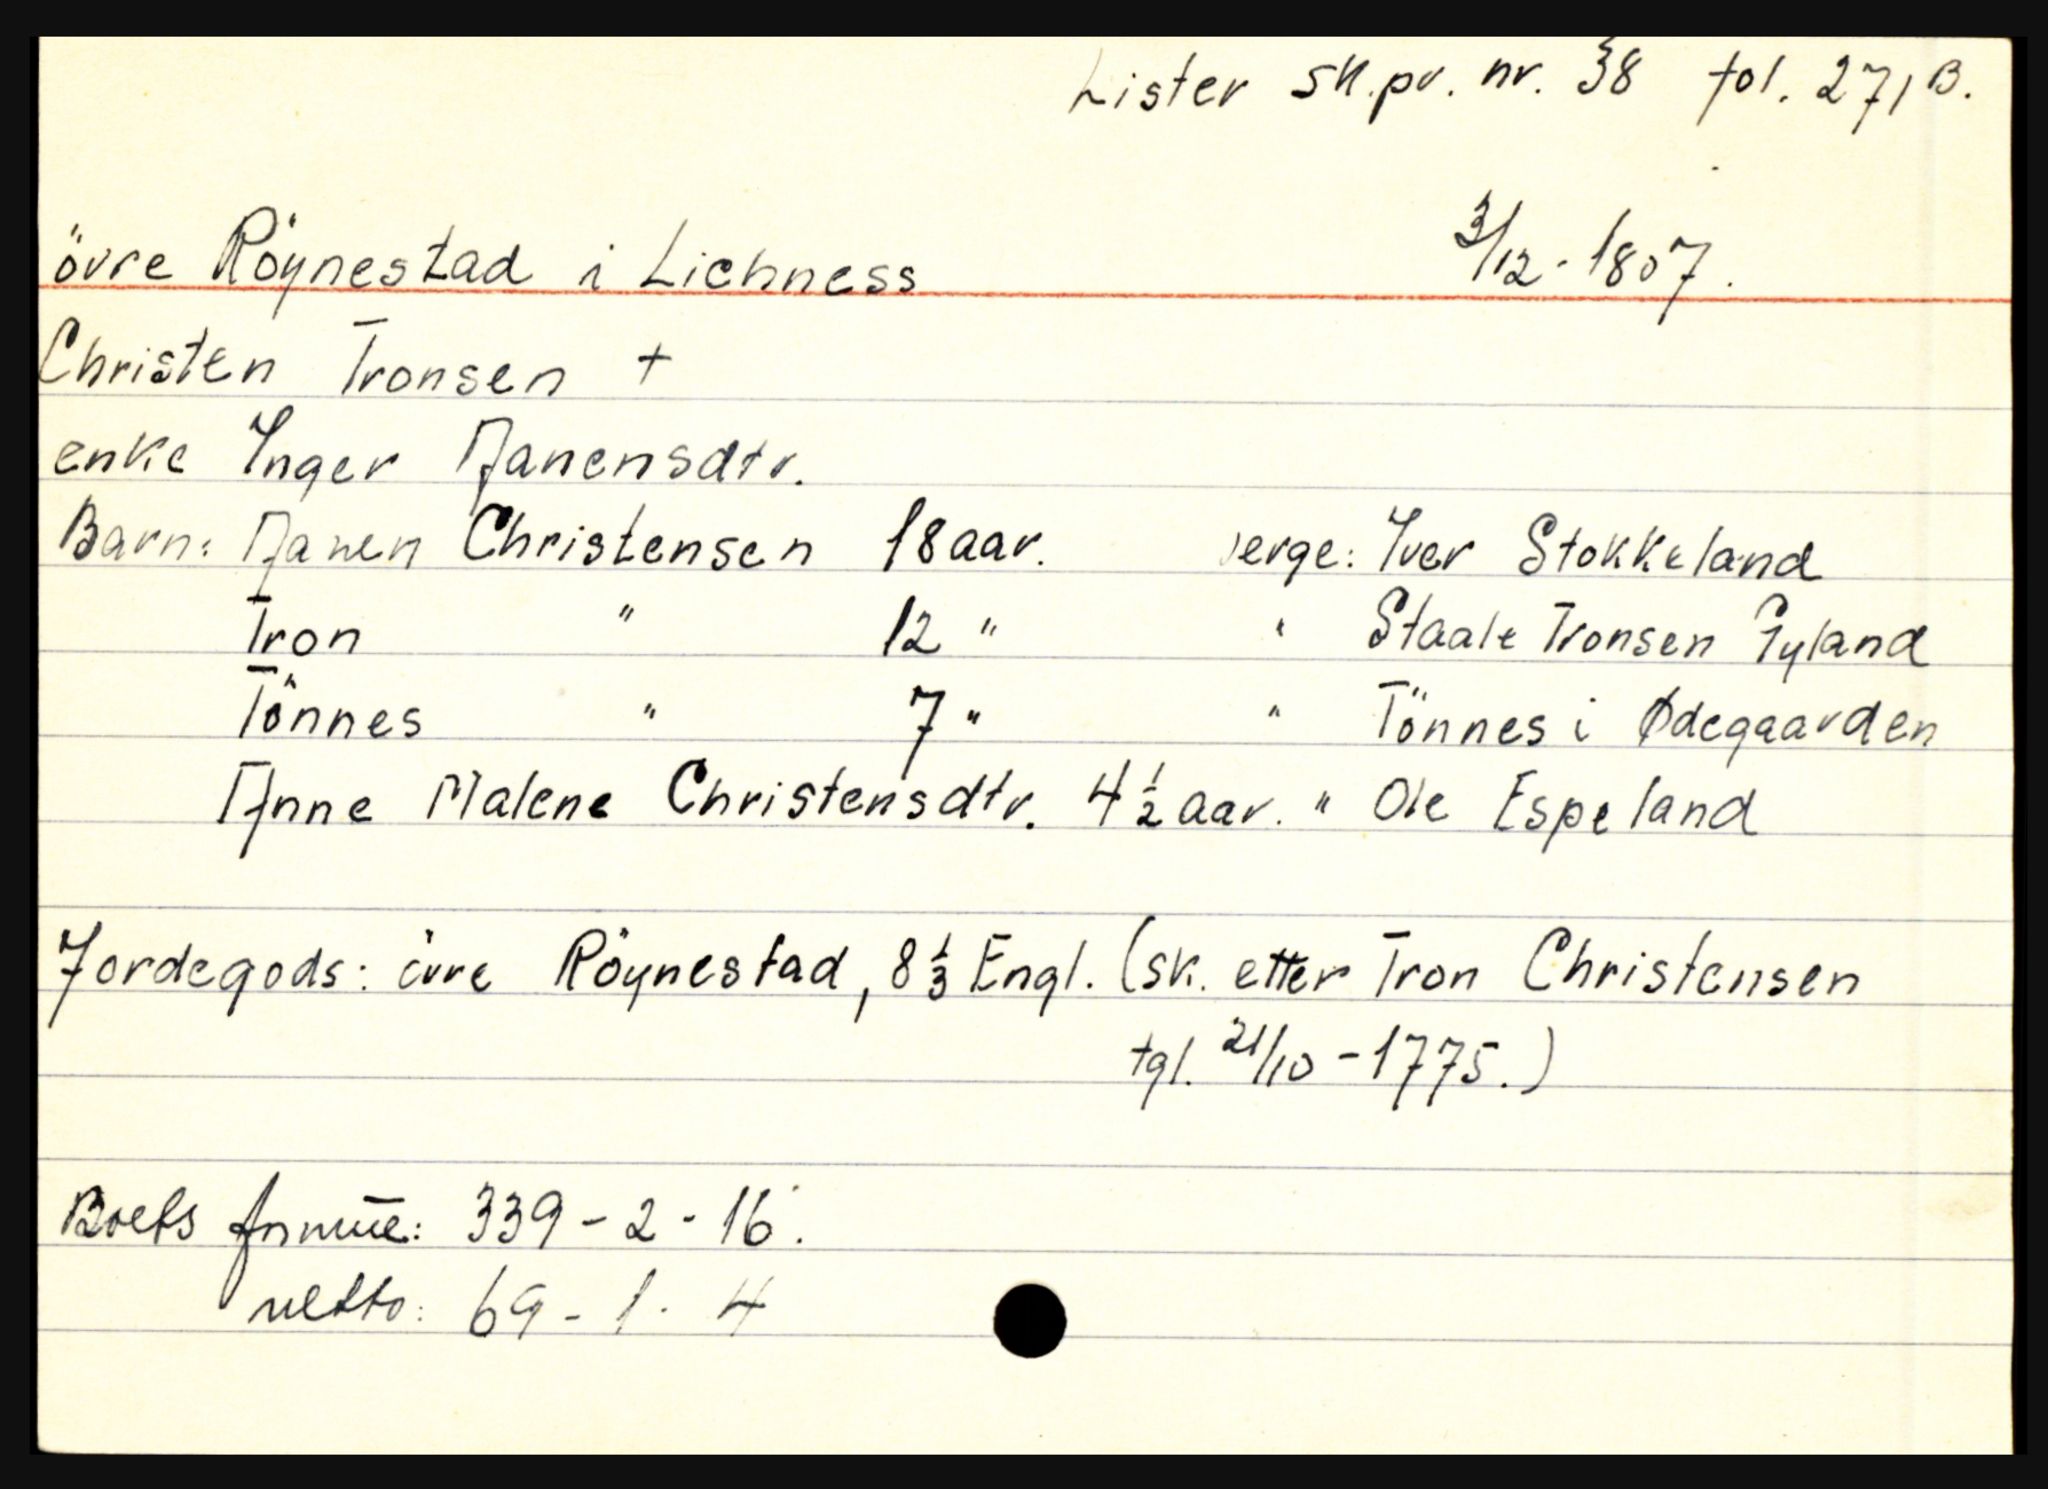 Lister sk.pr. nr. 38 fol. 271 B.
övre Röynestad i Lichness 3/12 - 1807.
Christen Tronsen +
enke Inger Aanensdtr.
Barn: Aanen Christensen 18 aar. verge: Iver Stokkeland
Tron " 12 " " Staale Tronsen Gyland
Tönnes " 7 " " Tönnes i Ødegaarden
Anne Malene Christensdtr. 4 1/2 aar. " Ole Espeland
Jordegods: övre Röynestad, 8 1/3 Engl. (sk. etter Tron Christensen
tgl. 21/10 - 1775.)
Boets 339 - 2 - 16.
netto: 69 - 1 - 4